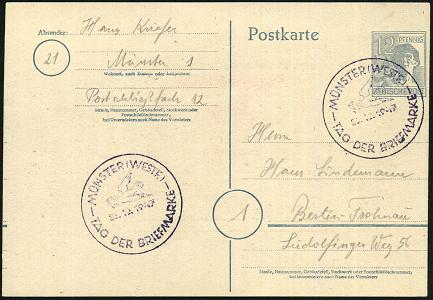 Absender: Hans Kriefer
21 Münster 1
Wohnort, auch Zustell- oder Leitpostamt
Postschließfach 12
Straße, Hausnummer, Gebäudeteil, Stockwerk oder Postschließfachnummer,
bei Untermietern auch Name des Vermieters
Postkarte
12 PFENNIG
DEUTSCHE POST
MÜNSTER (WESTF.)
TAG DER BRIEFMARKE
Herrn
Hans Lindemann
1 Berlin-Frohnau
Ludolfinger Weg 56
Straße, Hausnummer, Gebäudeteil, Stockwerk oder Postschließfachnummer,
bei Untermietern auch Name des Vermieters
MÜNSTER (WESTF.)
TAG DER BRIEFMARKE